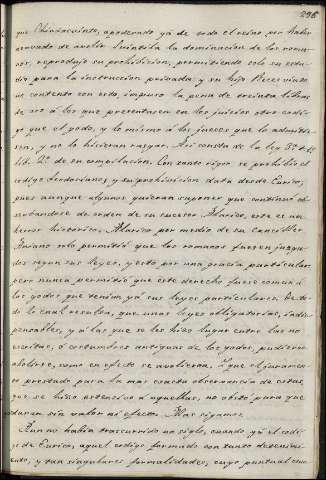 296
que Chindasvinto, apoderado yá de todo el reino por haber
acavado de avolir Suintila la dominacion de los roma-
nos, reprodujo su prohibicion, permitiendo solo su estu-
dio para la instruccion privada; y su hijo Recesvinto
no contento con esto, impuso la pena de treinta libras
de oro á los que presentasen en los juicios otro codi-
go que el godo, y lo mismo á los jueces que lo admitie-
sen, y no lo hiciesen rasgar. Asi consta de la ley
lib. 2º de su compilacion. Con tanto rigor se prohibió el
codigo teodosiano, y su prohivicion data desde Eurico;
pues aunque algunos quieran suponer que continuó ob-
servandose de orden de su sucesor Alarico, este es un
herror historico. Alarico por medio de su canciller
Aniano solo permitió que los romanos fuesen juzga-
dos segun sus leyes, y esto por una gracia particular,
pero nunca permitió que este derecho fuese comun á
los godos que tenian yá sus leyes particulares. De to-
do lo cual resulta, que unas leyes obligatorias, indis-
pensables, y á las que se les hizo lugar entre las no
escritas, ó costumbres antiguas de los godos, pudieron
abolirse, como en efecto se avolieron. Y que el juramen-
to prestado para la mas exacta observancia de estas,
que se hizo estensivo á aquellas, no obstó para que
daran sin valor ni efecto. Mas sigamos.
Aun no habia trascurrido un siglo, cuando yá el codi-
go de Eurico, aquel codigo formado con tanto detenimi-
ento, y tan singulares formalidades, cuyo puntual cum-